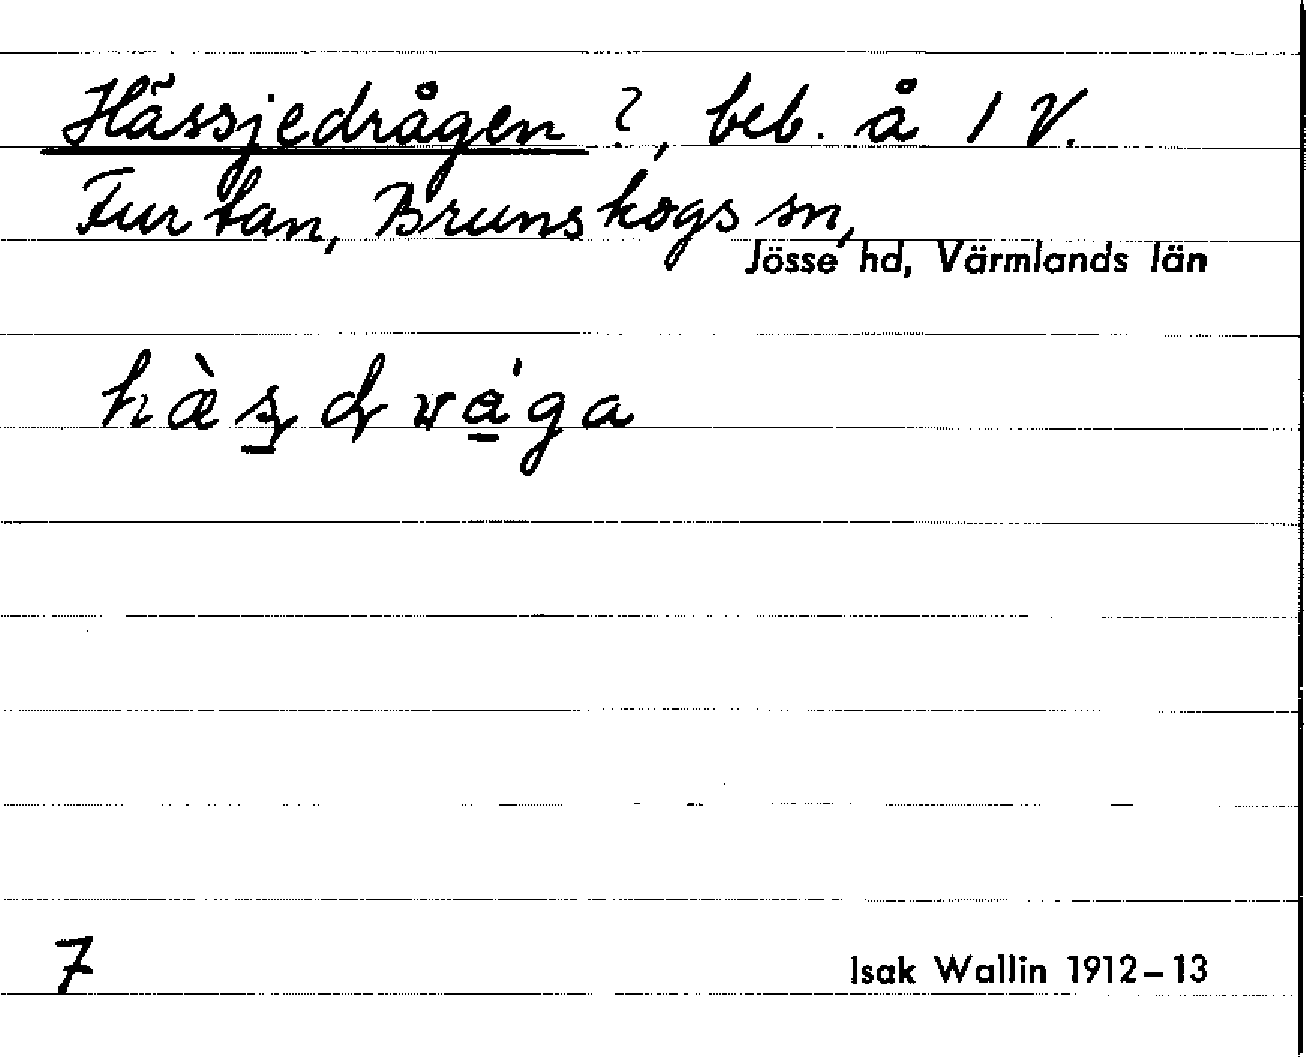 Hässjedrågen ?, beb. å 1 V.
Furtan, Brunskogs sn,
Jösse hd, Värmlands län
hæ̀s̱dra̱̍ga
7
Isak Wallin 1912–13